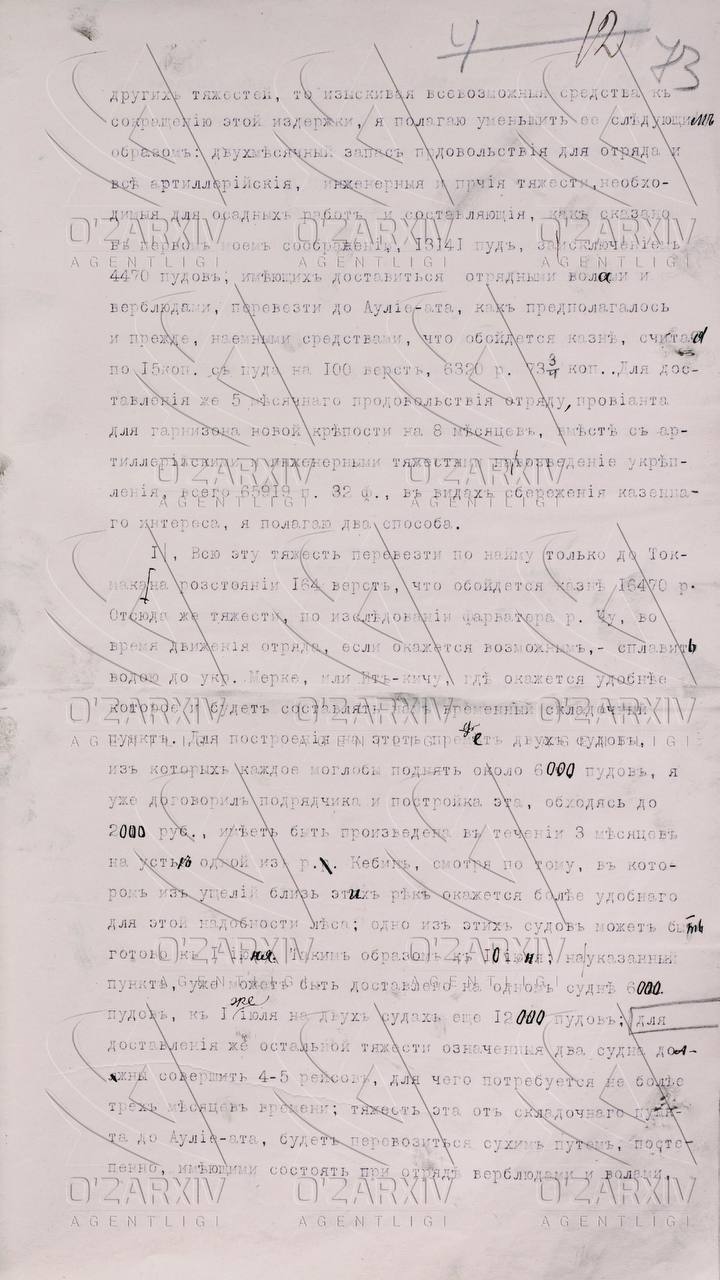 4 12 73
другихъ тяжестей, то изыскивая всевозможныя средства къ
сокращенію этой издержки, я полагаю уменьшить ее слѣдующимъ
образомъ: двухмѣсячный запасъ прдовольствія для отряда и
всѣ артиллерійскія, инженерныя и прчія тяжести,необхо-
димыя для осадныхъ работъ и составляющія, какъ сказано
въ первомъ моемъ сообраніи, 13141 пудъ, заисключеніемъ
4470 пудовъ; имѣющихъ доставиться отрядными волами и
верблюдами, перевезти до Ауліе-ата, какъ предполагалось
и прежде, наемными средствами, что обойдется казнѣ, считая
по 15коп. съ пуда на 100 верстъ, 6320 р. 73 3/4 коп..Для дос-
тавленія же 5 мѣсячнаго продовольствія отряду, провіанта
для гарнизона новой крѣпости на 8 мѣсяцевъ, вмѣстѣ съ ар-
тиллерійскими и инженерными тяжестями на возведеніе укрѣп-
ленія, всего 65919 п. 32 ф., въ видахъ сбереженія казенна-
го интереса, я полагаю два способа.
I/, Всю эту тяжесть перевезти по найму только до Ток-
мака/на розстояніи 164 верстъ, что обойдется казнѣ 16470 р.
Отсюда же тяжести, по изслѣдованіи фарватора р. Чу, во
время движенія отряда, если окажется возможнымъ,- сплавить
водою до укр. Мерке, или Итъ-кичу, гдѣ окажется удобнѣе
которое и будетъ составлять временный складочный
пунктъ. Для построенія на этотъ предметъ двухъ судовъ,
изъ которыхъ каждое моглобы поднять около 6000 пудовъ, я
уже договорилъ подрядчика и постройка эта, обходясь до
2000 руб., имѣетъ быть произведена въ теченіи 3 мѣсяцевъ
на устьѣ одной изъ р.р. Кебинъ, смотря по тому, въ кото-
ромъ изъ ущелій близь этихъ рѣкъ окажется болѣе удобнаго
для этой надобности лѣса; одно изъ этихъ судовъ можетъ быть
готово къ 1 іюня. Такимъ образомъ къ 10 іюня; на указанный
пунктъ, уже можетъ быть доставлено на одномъ суднѣ 6000
пудовъ, къ 1 же іюля на двухъ судахъ еще 12000 пудовъ; для
доставленія же остальной тяжести означенныя два судна дол-
жны совершить 4-5 рейсовъ, для чего потребуется не болѣе
трехъ мѣсяцевъ времени; тяжесть эта отъ складочнаго пунк-
та до Ауліе-ата, будетъ перевозиться сухимъ путемъ, посте-
пенно, имѣющими состоять при отрядѣ верблюдами и волами,
O'ZARXIV
AGENTLIGI